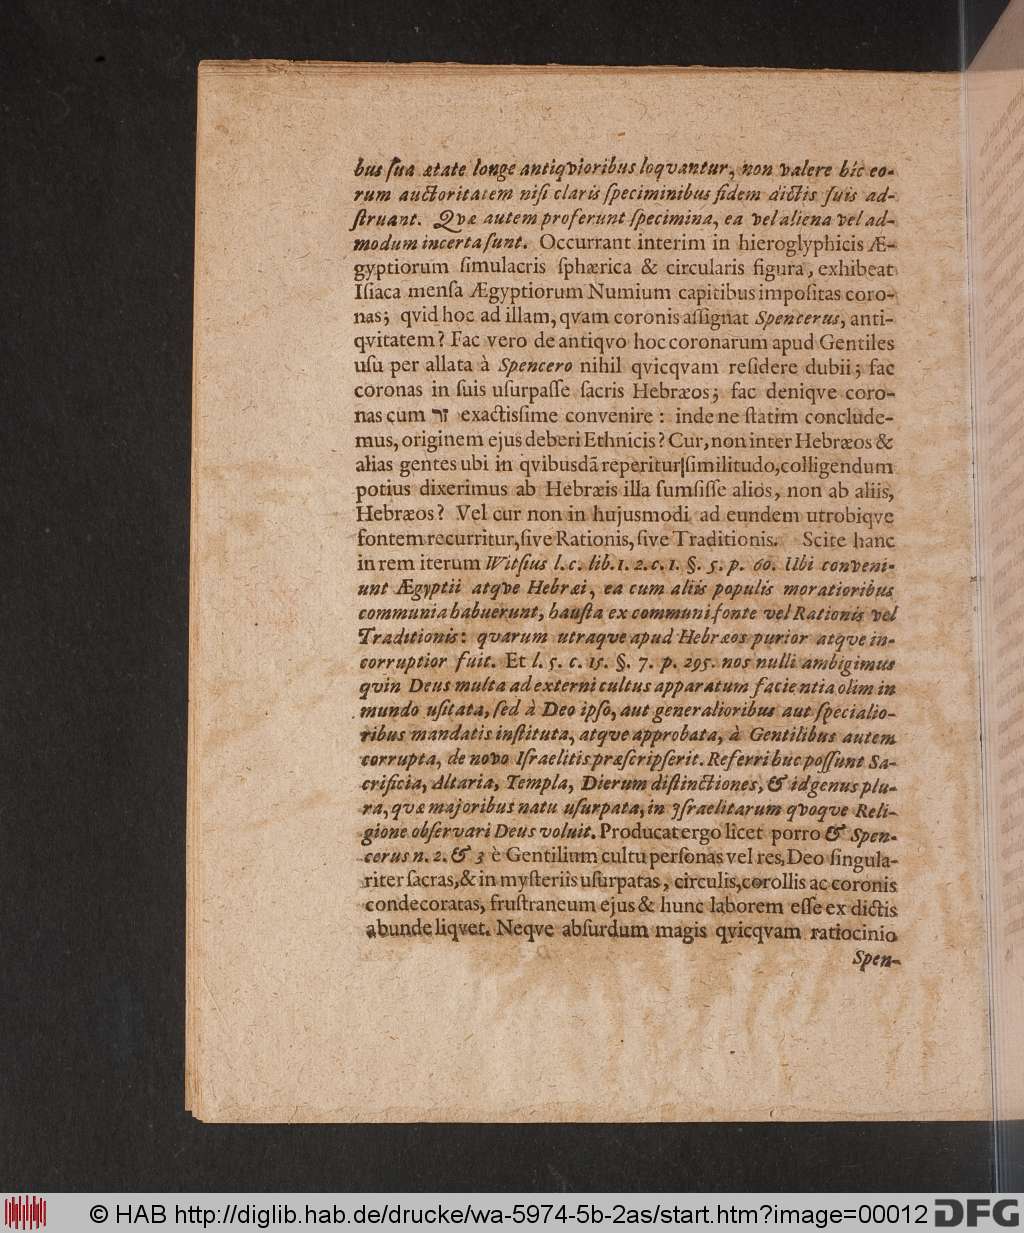 bus ſua ætate longe antiqvioribus loqvantur, non valere hic eo-
rum auctoritatem niſi claris ſpeciminibus fidem dictis ſuis ad-
ſtruant. Qvæ autem proferunt ſpecimina, ea vel aliena vel ad-
modum incerta ſunt. Occurrant interim in hieroglyphicis Æ-
gyptiorum ſimulacris ſphærica & circularis figura, exhibeat
Iſiaca menſa Ægyptiorum Numium capitibus impoſitas coro-
nas; qvid hoc ad illam, qvam coronis aſſignat Spencerus, anti-
qvitatem? Fac vero de antiqvo hoc coronarum apud Gentiles
uſu per allata à Spencero nihil qvicqvam reſidere dubii; fac
coronas in ſuis uſurpaſſe ſacris Hebræos; fac deniqve coro-
nas cum זר exactisſime convenire: inde ne ſtatim conclude-
mus, originem ejus deberi Ethnicis? Cur, non inter Hebræos &
alias gentes ubi in qvibusdã reperitur ſimilitudo, colligendum
potius dixerimus ab Hebræis illa ſumſiſſe alios, non ab aliis,
Hebræos? Vel cur non in hujusmodi ad eundem utrobiqve
fontem recurritur, ſive Rationis, ſive Traditionis. Scite hanc
in rem iterum Witſius l. c. lib. 1. 2. c. 1. §. 5. p. 60. Ubi conveni-
unt Ægyptii atqve Hebræi, ea cum aliis populis moratioribus
communia habuerunt, hauſta ex communi fonte vel Rationis vel
Traditionis: qvarum utraque apud Hebræos purior atqve in-
corruptior fuit. Et l. 5. c. 15. §. 7. p. 295. nos nulli ambigimus
qvin Deus multa ad externi cultus apparatum facientia olim in
mundo uſitata, ſed à Deo ipſo, aut generalioribus aut ſpecialio-
ribus mandatis inſtituta, atqve approbata, à Gentilibus autem
corrupta, de novo Iſraelitis præſcripſerit. Referri huc poſſunt Sa-
crificia, Altaria, Templa, Dierum diſtinctiones, & id genus plu-
ra, qvæ majoribus natu uſurpata, in Iſraelitarum qvoqve Reli-
gione obſervari Deus voluit. Producat ergo licet porro & Spen-
cerus n. 2. & 3 è Gentilium cultu perſonas vel res, Deo ſingula-
riter ſacras, & in myſteriis uſurpatas, circulis, corollis ac coronis
condecoratas, fruſtraneum ejus & hunc laborem eſſe ex dictis
abunde liqvet. Neqve abſurdum magis qvicqvam ratiocinio
Spen-
© HAB http://diglib.hab.de/drucke/wa-5974-5b-2as/start.htm?image=00012
DFG